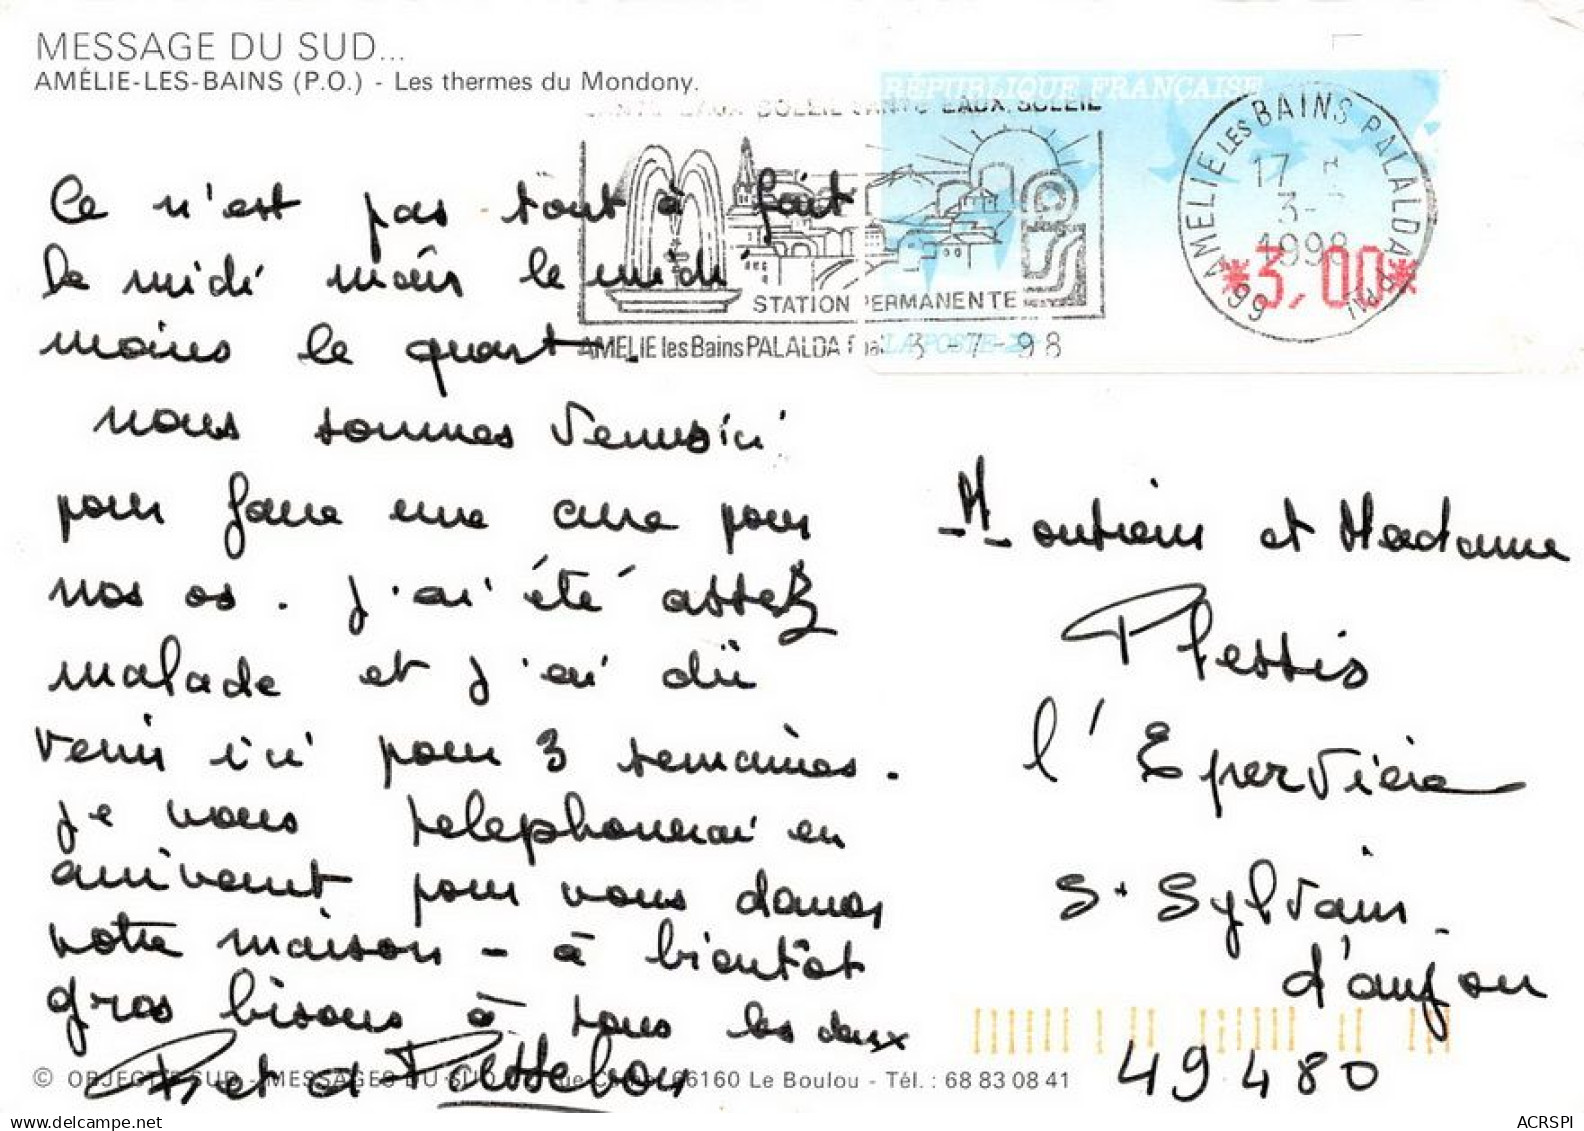 MESSAGE DU SUD...
AMÉLIE-LES-BAINS (P.O.) - Les thermes du Mondony.
RÉPUBLIQUE FRANÇAISE
SOLEIL SANTÉ EAUX SOLEIL
STATION PERMANENTE
AMELIE les Bains PALALDA 3-7-98
LA POSTE
AMELIE LES BAINS PALALDA
17
3-
1998
66
*3,00*
Ce n'est pas tout à fait
le midi mais le midi
moins le quart.
nous sommes venus ici
pour faire une cure pour
nos os. j'ai été assez
malade et j'ai dû
venir ici pour 3 semaines.
je vous telephonerai en
arrivant pour vous
votre maison - à bientôt
gros bisous à tous les deux
Monsieur et Madame
Plessis
l'Eperviere
S. Sylvain
d'anjou
49480
© OBJECTIF SUD - MESSAGES DU SUD 66160 Le Boulou - Tél. : 68 83 08 41
ACRSPI